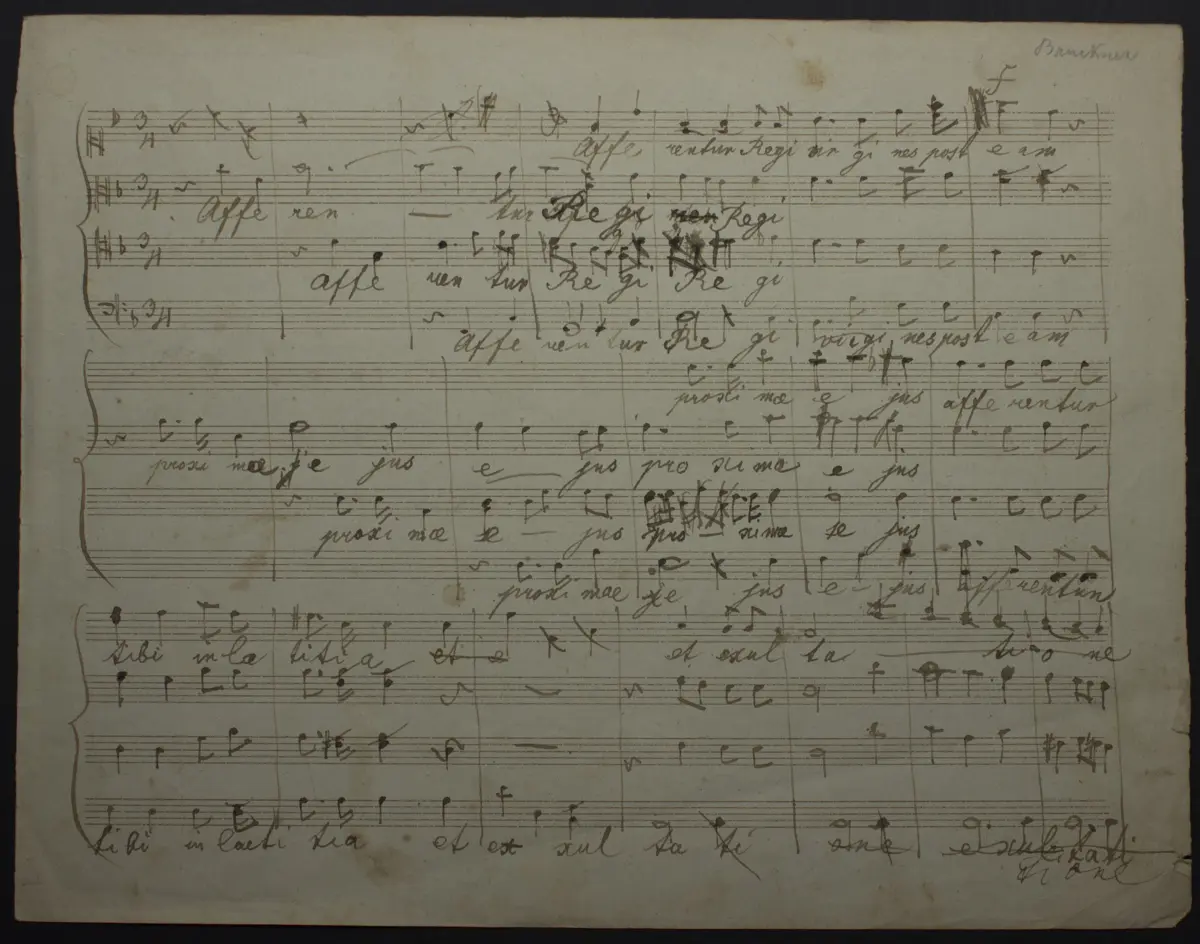 Bruckner
f
Affe rentur Regi vir gi nes post e am
Affe ren — tur Regi Regi
affe ren tur Re gi Re gi
Affe ren tur Re gi virgi nes post e am
proxi mae e jus afferentur
proxi mae e jus e — jus pro xi mae e jus
proxi mae e — jus pro — xi mae e jus
proxi mae e jus e — jus afferentur
tibi in lae titi a et e et exul ta — ti o ne
tibi in laeti tia et ex xul ta ti one exultati
ti one